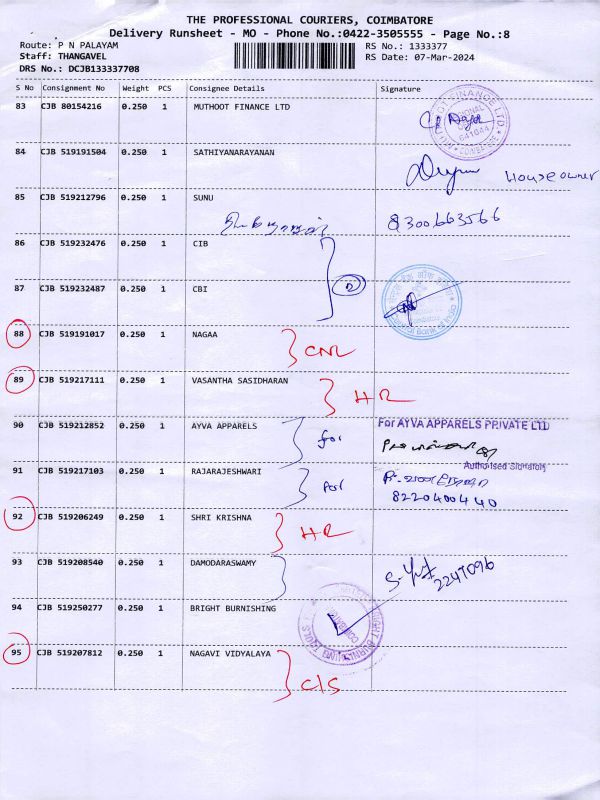 THE PROFESSIONAL COURIERS, COIMBATORE
Delivery Runsheet - MO - Phone No.:0422-3505555 - Page No.:8
Route: P N PALAYAM
RS No.: 1333377
Staff: THANGAVEL
RS Date: 07-Mar-2024
DRS No.: DCJB133337708
S No Consignment No Weight PCS Consignee Details Signature
83 CJB 80154216 0.250 1 MUTHOOT FINANCE LTD
84 CJB 519191504 0.250 1 SATHIYANARAYANAN
House owner
85 CJB 519212796 0.250 1 SUNU
8300663566
86 CJB 519232476 0.250 1 CIB
87 CJB 519232487 0.250 1 CBI
88 CJB 519191017 0.250 1 NAGAA
CNL
89 CJB 519217111 0.250 1 VASANTHA SASIDHARAN
HR
90 CJB 519212852 0.250 1 AYVA APPARELS
for
For AYVA APPARELS PRIVATE LTD
Authorised Signatory
91 CJB 519217103 0.250 1 RAJARAJESHWARI
8220400440
92 CJB 519206249 0.250 1 SHRI KRISHNA
HR
93 CJB 519208540 0.250 1 DAMODARASWAMY
2247096
94 CJB 519250277 0.250 1 BRIGHT BURNISHING
95 CJB 519207812 0.250 1 NAGAVI VIDYALAYA
C/S